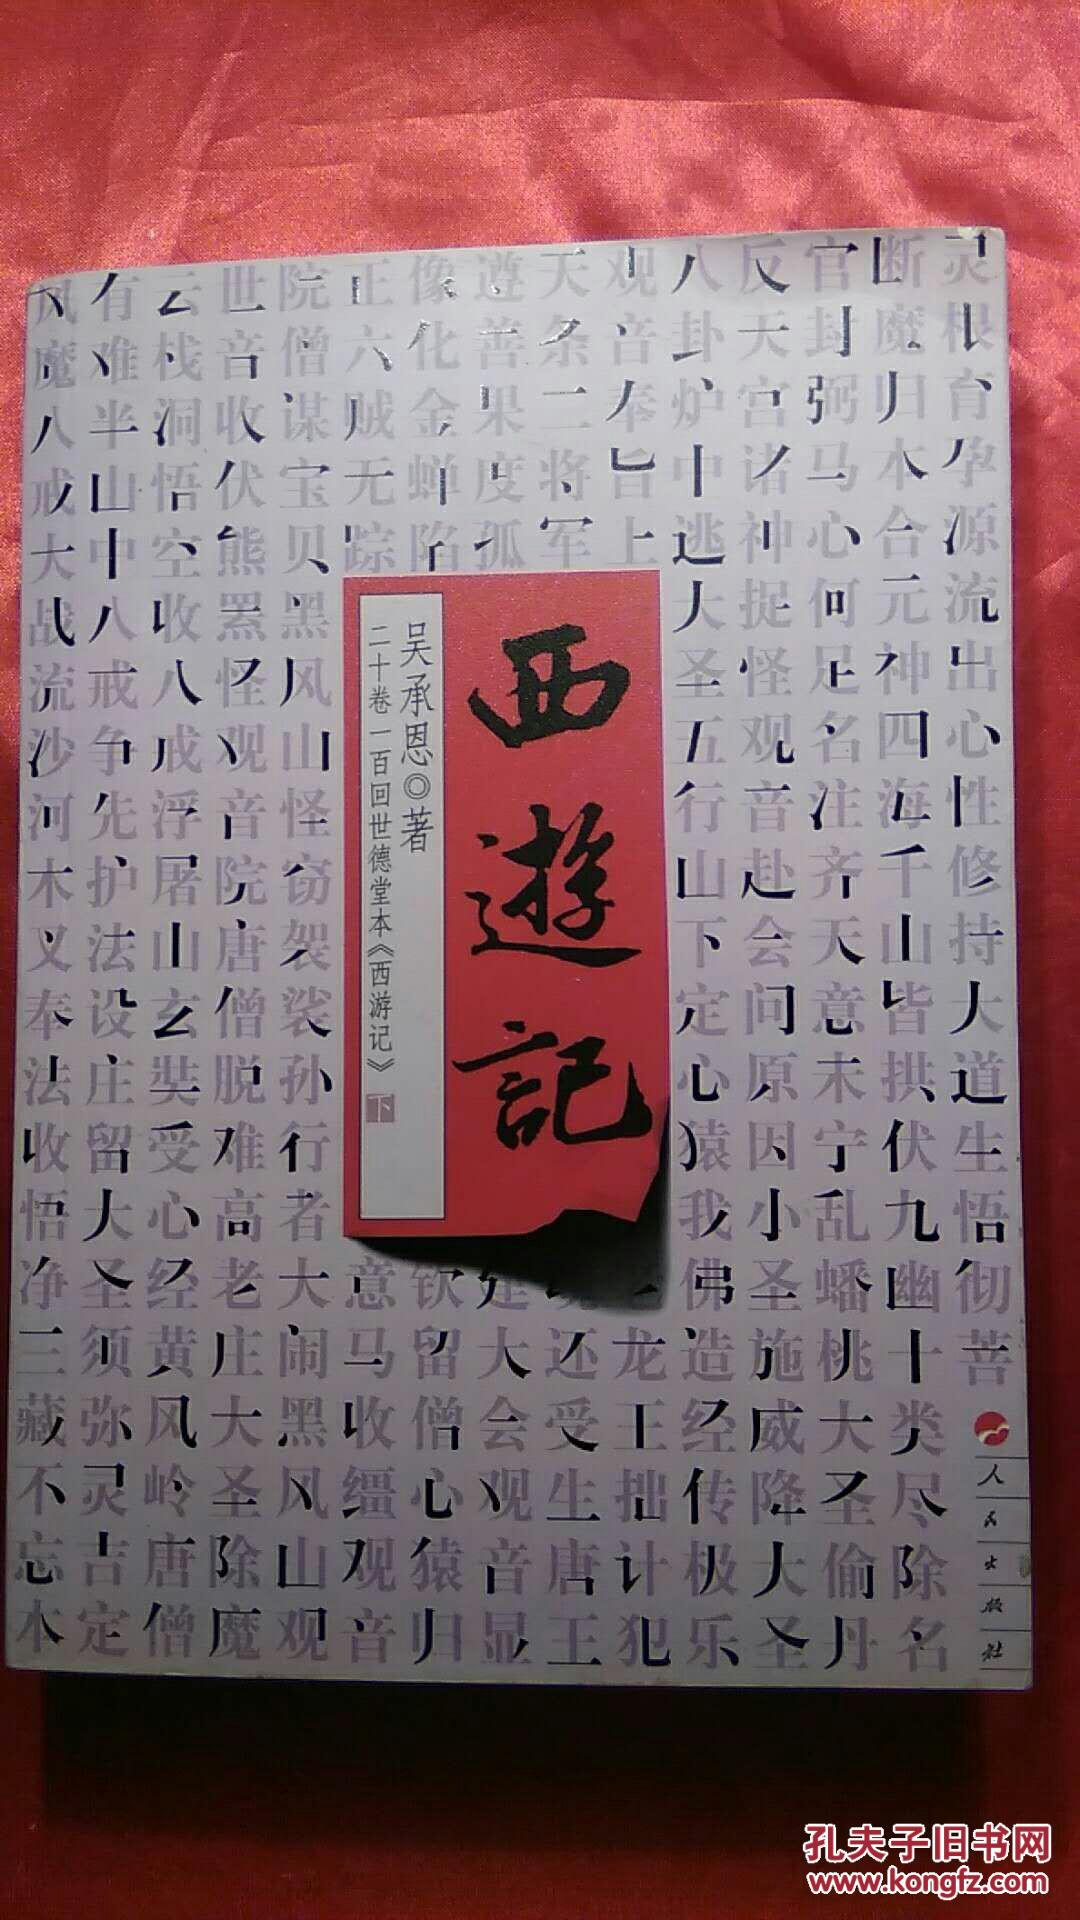 灵根育孕源流出心性修持大道生悟彻菩
断魔归本合元神四海千山皆拱伏九幽十类尽除名
官封弼马心何足名注齐天意未宁乱蟠桃大圣偷丹
反天宫诸神捉怪观音赴会问原因小圣施威降大圣
八卦炉中逃大圣五行山下定心猿我佛造经传极乐
观音奉旨上
龙王拙计犯
天条二将军
还受生唐王
遵善果度孤
建大会观音显
像化金蝉陷
钦留僧心猿归
正六贼无踪
意马收缰观音
院僧谋宝贝黑风山怪窃袈裟孙行者大闹黑风山观
世音收伏熊罴怪观音院唐僧脱难高老庄大圣除魔
云栈洞悟空收八戒浮屠山玄奘受心经黄风岭唐僧
有难半山中八戒争先护法设庄留大圣须弥灵吉定
风魔八戒大战流沙河木叉奉法收悟净三藏不忘本
西遊記
吴承恩◎著
二十卷一百回世德堂本《西游记》 下
人民出版社
孔夫子旧书网
www.kongfz.com